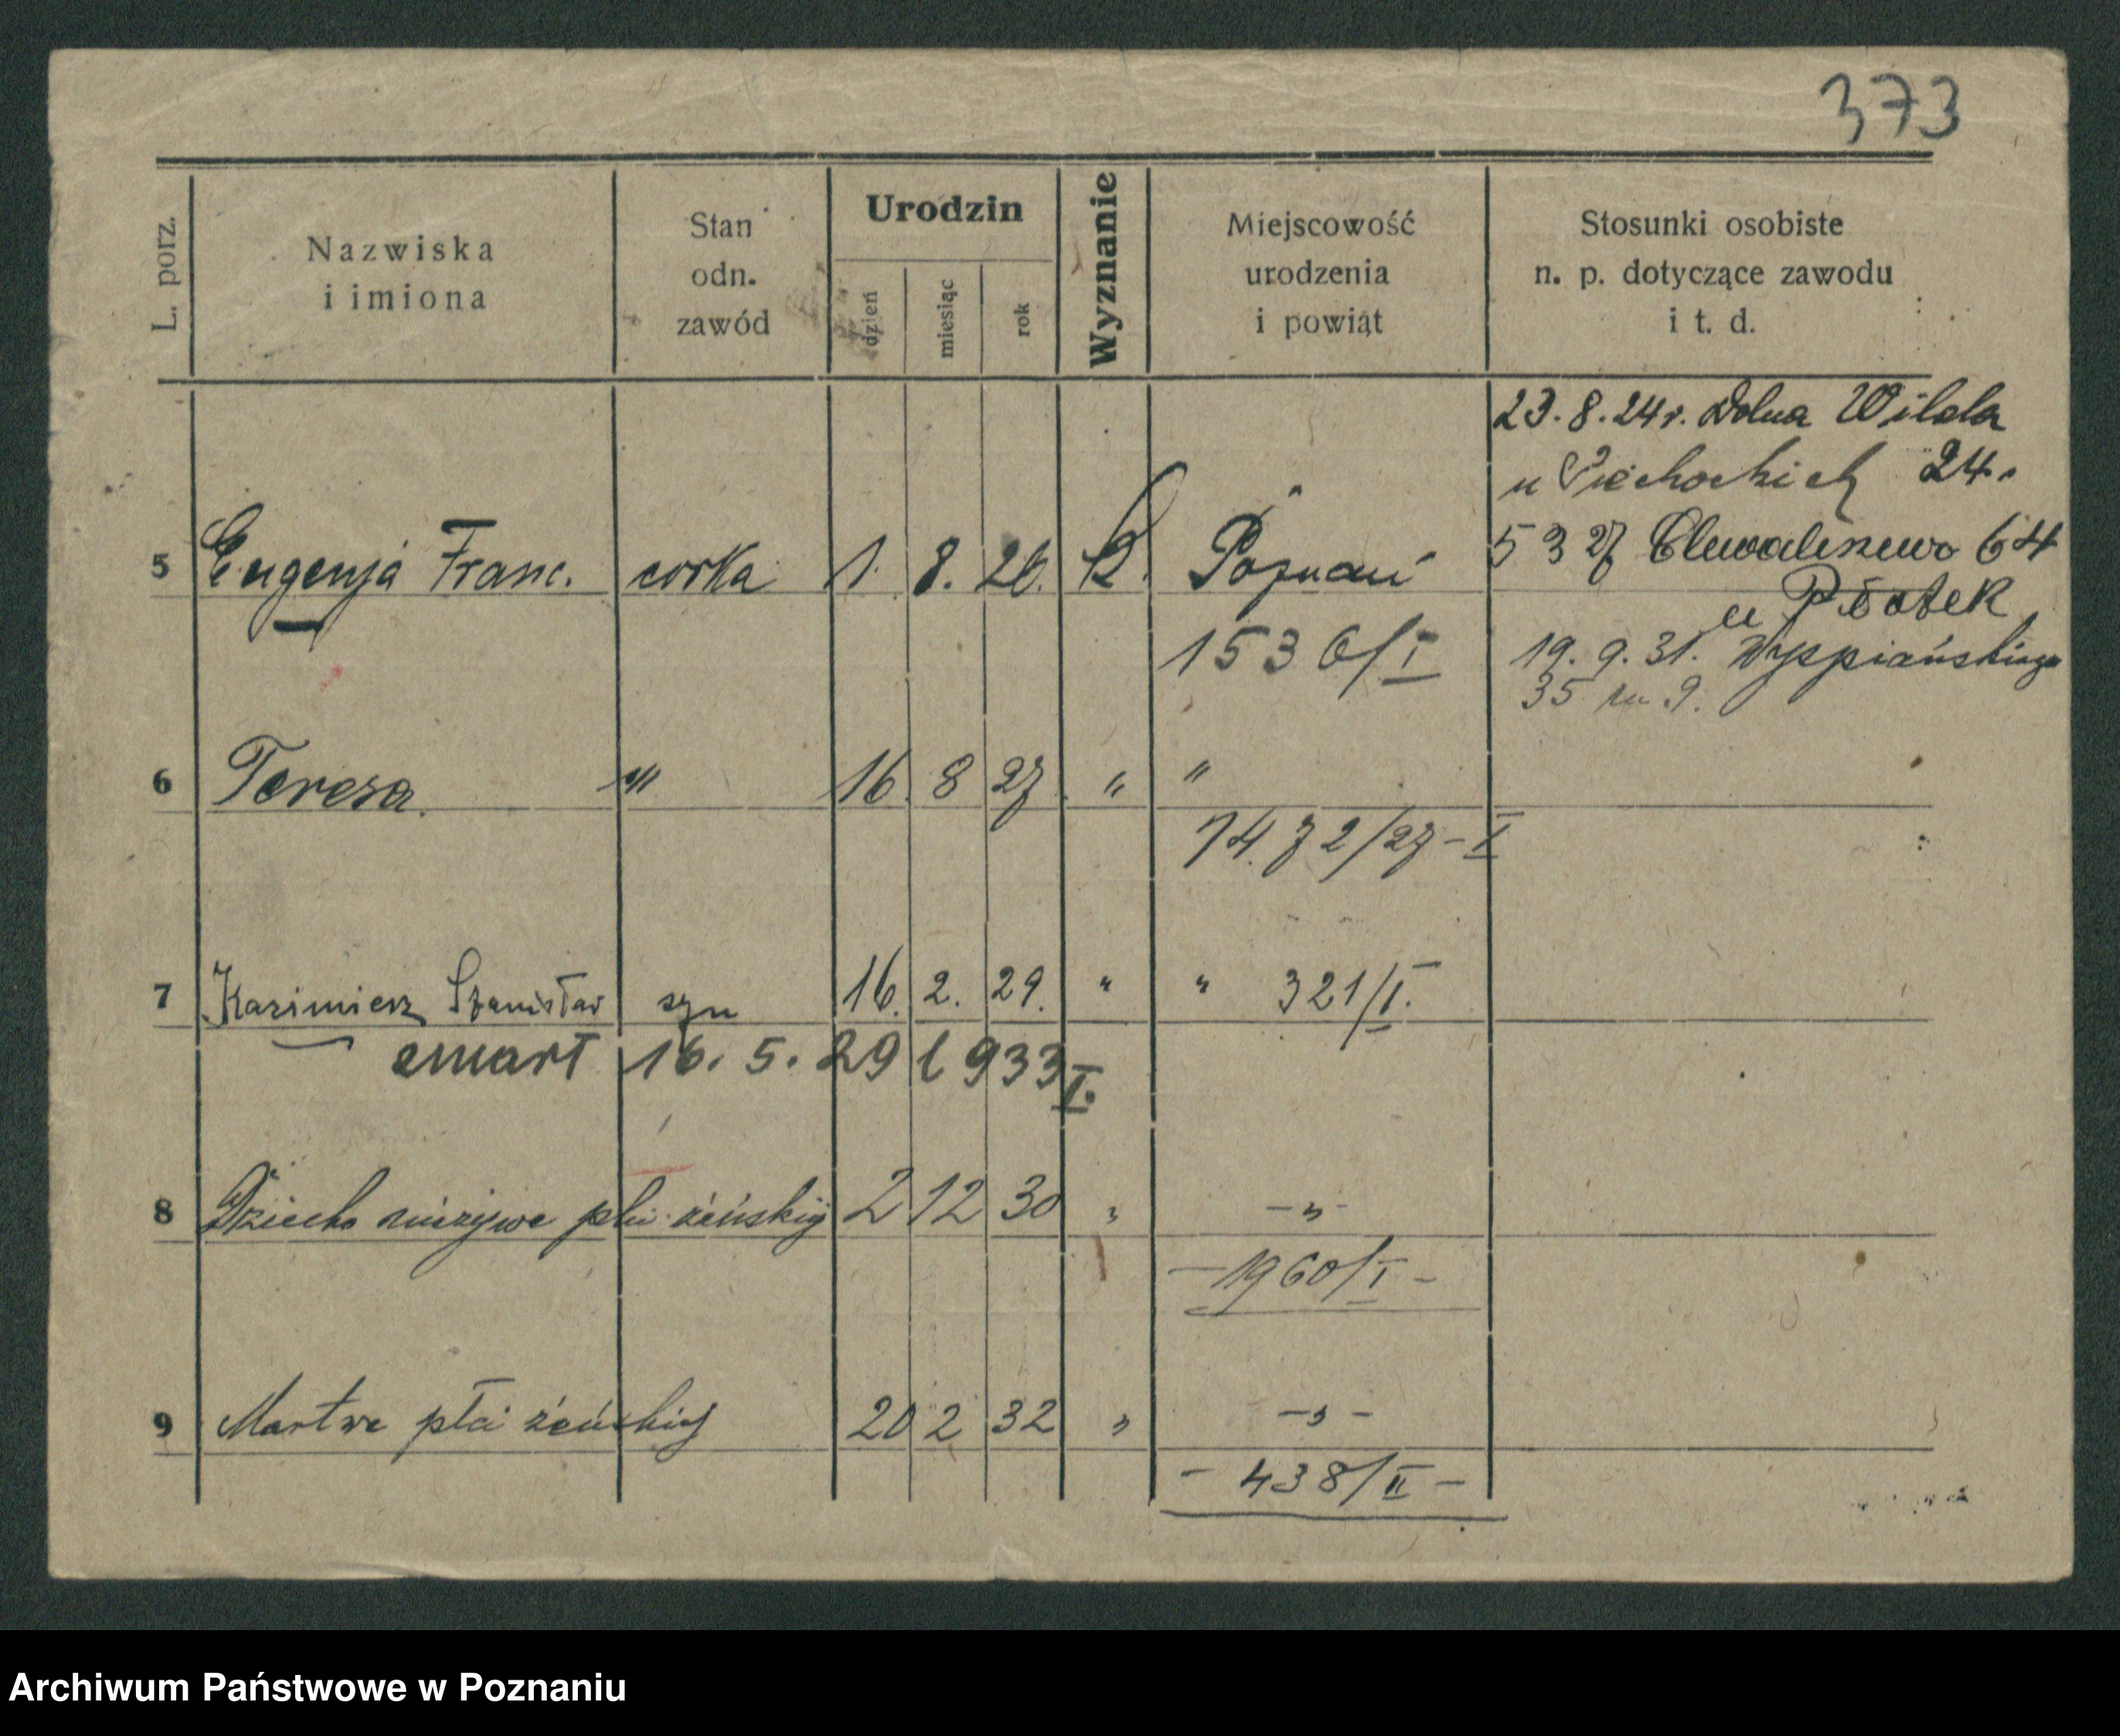 373
L. porz.
Nazwiska
i imiona
Stan
odn.
zawód
Urodzin
dzień
miesiąc
rok
Wyznanie
Miejscowość
urodzenia
i powiat
Stosunki osobiste
n. p. dotyczące zawodu
i t. d.
23. 8. 24 r. Dolna Wilda
u Piechockich 24.
5 Eugenja Franc. corka 1. 8. 26. K. Poznań
5 3 27 64
u
1536/I
19. 9. 31. Wyspiańskiego
35 m 9.
6 Teresa. " 16 8 27 " "
1472/27-I
7 Kazimierz Stanisław syn 16. 2. 29. " " 321/I.
zmarł 16. 5. 29 l 933 I.
8 Dziecko nieżywe płci żeńskiej 2 12 30 " -"-
-1960/I-
9 Martwe płci żeńskiej 20 2 32 " -"-
- 438/II -
Archiwum Państwowe w Poznaniu